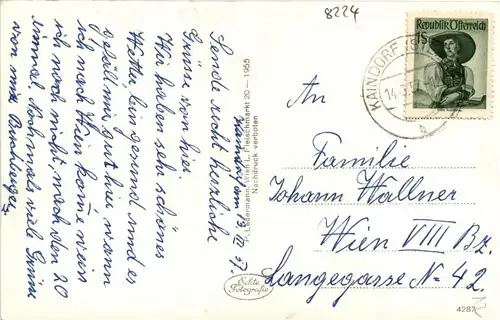 8224
Kaindorf am 13.IX.57.
Sende recht herzliche
Grüsse von hier
Wir haben sehr schönes
Wetter, bin gesund und es
gefält mir gut hier wann
ich nach Wien komme weis
ich noch nicht, nach den 20
einmal. Nochmals viel Grüsse
von mir
P. Ledermann, Wien I., Fleischmarkt 20 — 1955
Nachdruck verboten
Echte
Fotografie
Republik Österreich
1S
KAINDORF
14.
An
Familie
Johann Wallner
Wien VIII Bz.
Langegasse N- 42.
4287